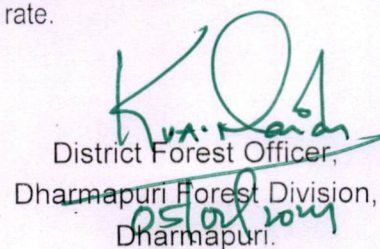 rate.
District Forest Officer,
Dharmapuri Forest Division,
Dharmapuri.